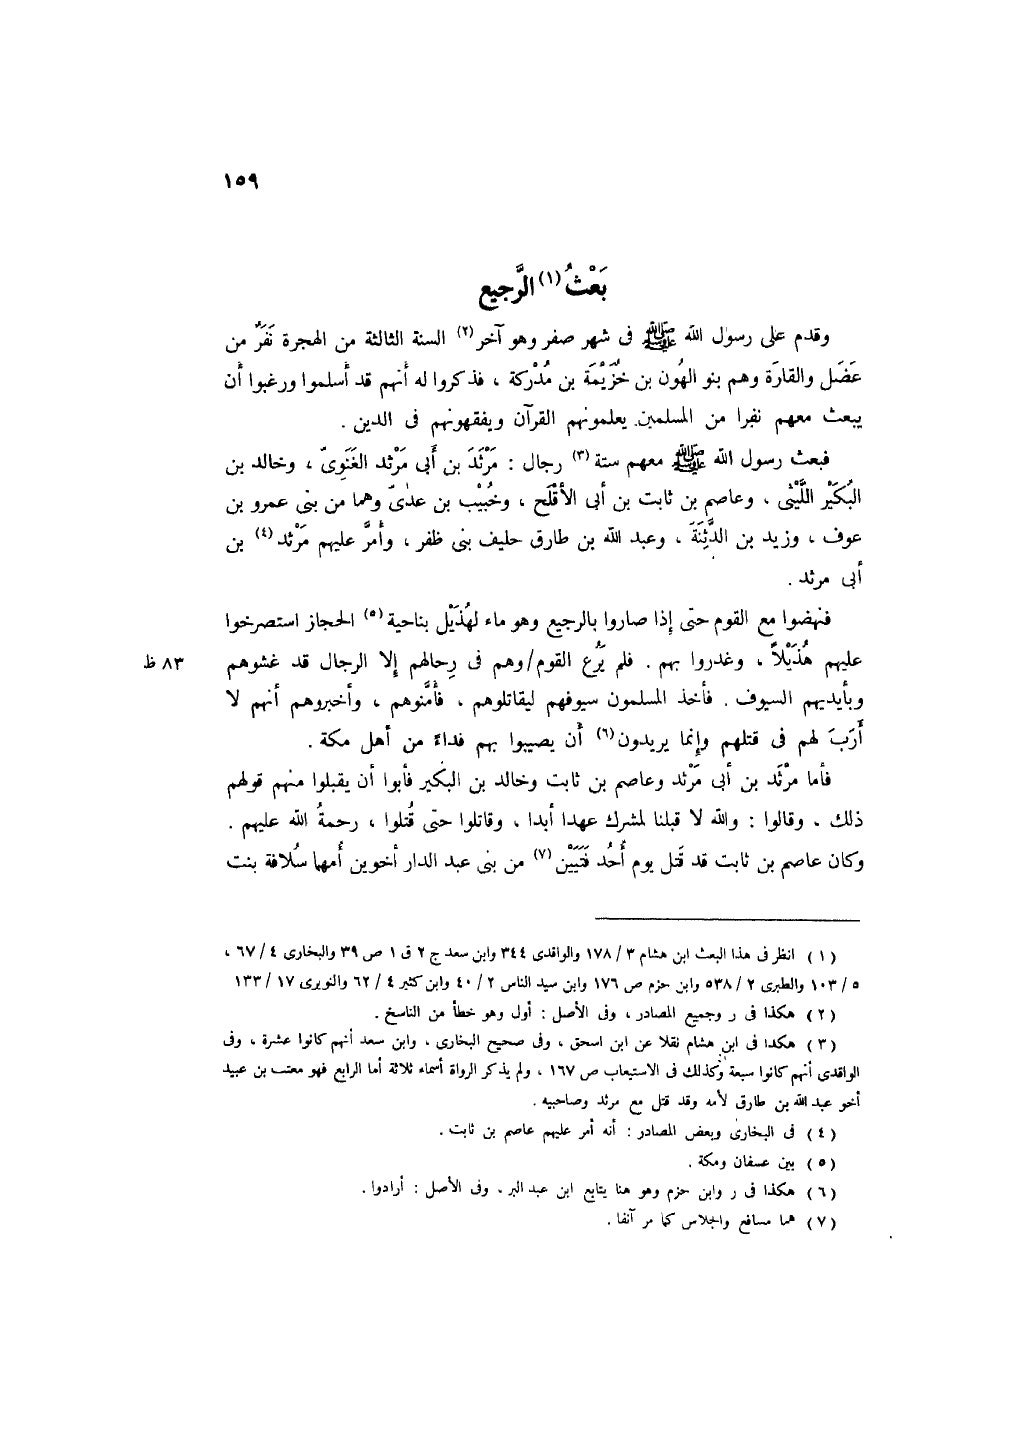 ١٥٩
بَعْثُ (١) الرَّجيع
وقدم على رسول الله ﷺ فى شهر صفر وهو آخر (٢) السنة الثالثة من الهجرة نَفَرٌ من
عَضَل والقارَة وهم بنو الهُون بن خُزَيْمَة بن مُدْركة ، فذكروا له أنهم قد أسلموا ورغبوا أن
يبعث معهم نفرا من المسلمين يعلمونهم القرآن ويفقهونهم فى الدين .
فبعث رسول الله ﷺ معهم ستة (٣) رجال : مَرْثَدَ بن أبى مَرْثد الغَنَوِىّ ، وخالد بن
البُكَيْر اللَّيْثى ، وعاصم بن ثابت بن أبى الأقْلَح ، وخُبَيْب بن عدىّ وهما من بنى عمرو بن
عوف ، وزيد بن الدَّثِنَةَ ، وعبد الله بن طارق حليف بنى ظفر ، وأمَّر عليهم مَرْثد (٤) بن
أبى مرثد .
فنهضوا مع القوم حتّى إذا صاروا بالرجيع وهو ماء لهُذَيْل بناحية (٥) الحجاز استصرخوا
عليهم هُذَيْلاً ، وغدروا بهم . فلم يَرُع القوم/وهم فى رِحالهم إلا الرجال قد غشوهم
٨٣ ظ
وبأيديهم السيوف . فأخذ المسلمون سيوفهم ليقاتلوهم ، فأمَّنوهم ، وأخبروهم أنهم لا
أَرَبَ لهم فى قتلهم وإنما يريدون (٦) أن يصيبوا بهم فداءً من أهل مكة .
فأما مرْثَد بن أبى مَرْثد وعاصم بن ثابت وخالد بن البكير فأبوا أن يقبلوا منهم قولهم
ذلك ، وقالوا : والله لا قبلنا لمشرك عهدا أبدا ، وقاتلوا حتّى قُتلوا ، رحمةُ الله عليهم .
وكان عاصم بن ثابت قد قَتل يوم أُحُد فَتَيَيْن (٧) من بنى عبد الدار أخوين أمهما سُلافة بنت
(١) انظر فى هذا البعث ابن هشام ٣ / ١٧٨ والواقدى ٣٤٤ وابن سعد ج ٢ ق ١ ص ٣٩ والبخارى ٤ / ٦٧ ،
٥ / ١٠٣ والطبرى ٢ / ٥٣٨ وابن حزم ص ١٧٦ وابن سيد الناس ٢ / ٤٠ وابن كثير ٤ / ٦٢ والنويرى ١٧ / ١٣٣
(٢) هكذا فى ر وجميع المصادر ، وفى الأصل : أول وهو خطأ من الناسخ .
(٣) هكذا فى ابن هشام نقلا عن ابن اسحق ، وفى صحيح البخارى ، وابن سعد أنهم كانوا عشرة ، وفى
الواقدى أنهم كانوا سبعة وكذلك فى الاستيعاب ص ١٦٧ ، ولم يذكر الرواة أسماء ثلاثة أما الرابع فهو معتب بن عبيد
أخو عبد الله بن طارق لأمه وقد قتل مع مرثد وصاحبيه .
(٤) فى البخارى وبعض المصادر : أنه أمر عليهم عاصم بن ثابت .
(٥) بين عسفان ومكة .
(٦) هكذا فى ر وابن حزم وهو هنا يتابع ابن عبد البر ، وفى الأصل : أرادوا .
(٧) هما مسافع والجلاس كما مر آنفا .